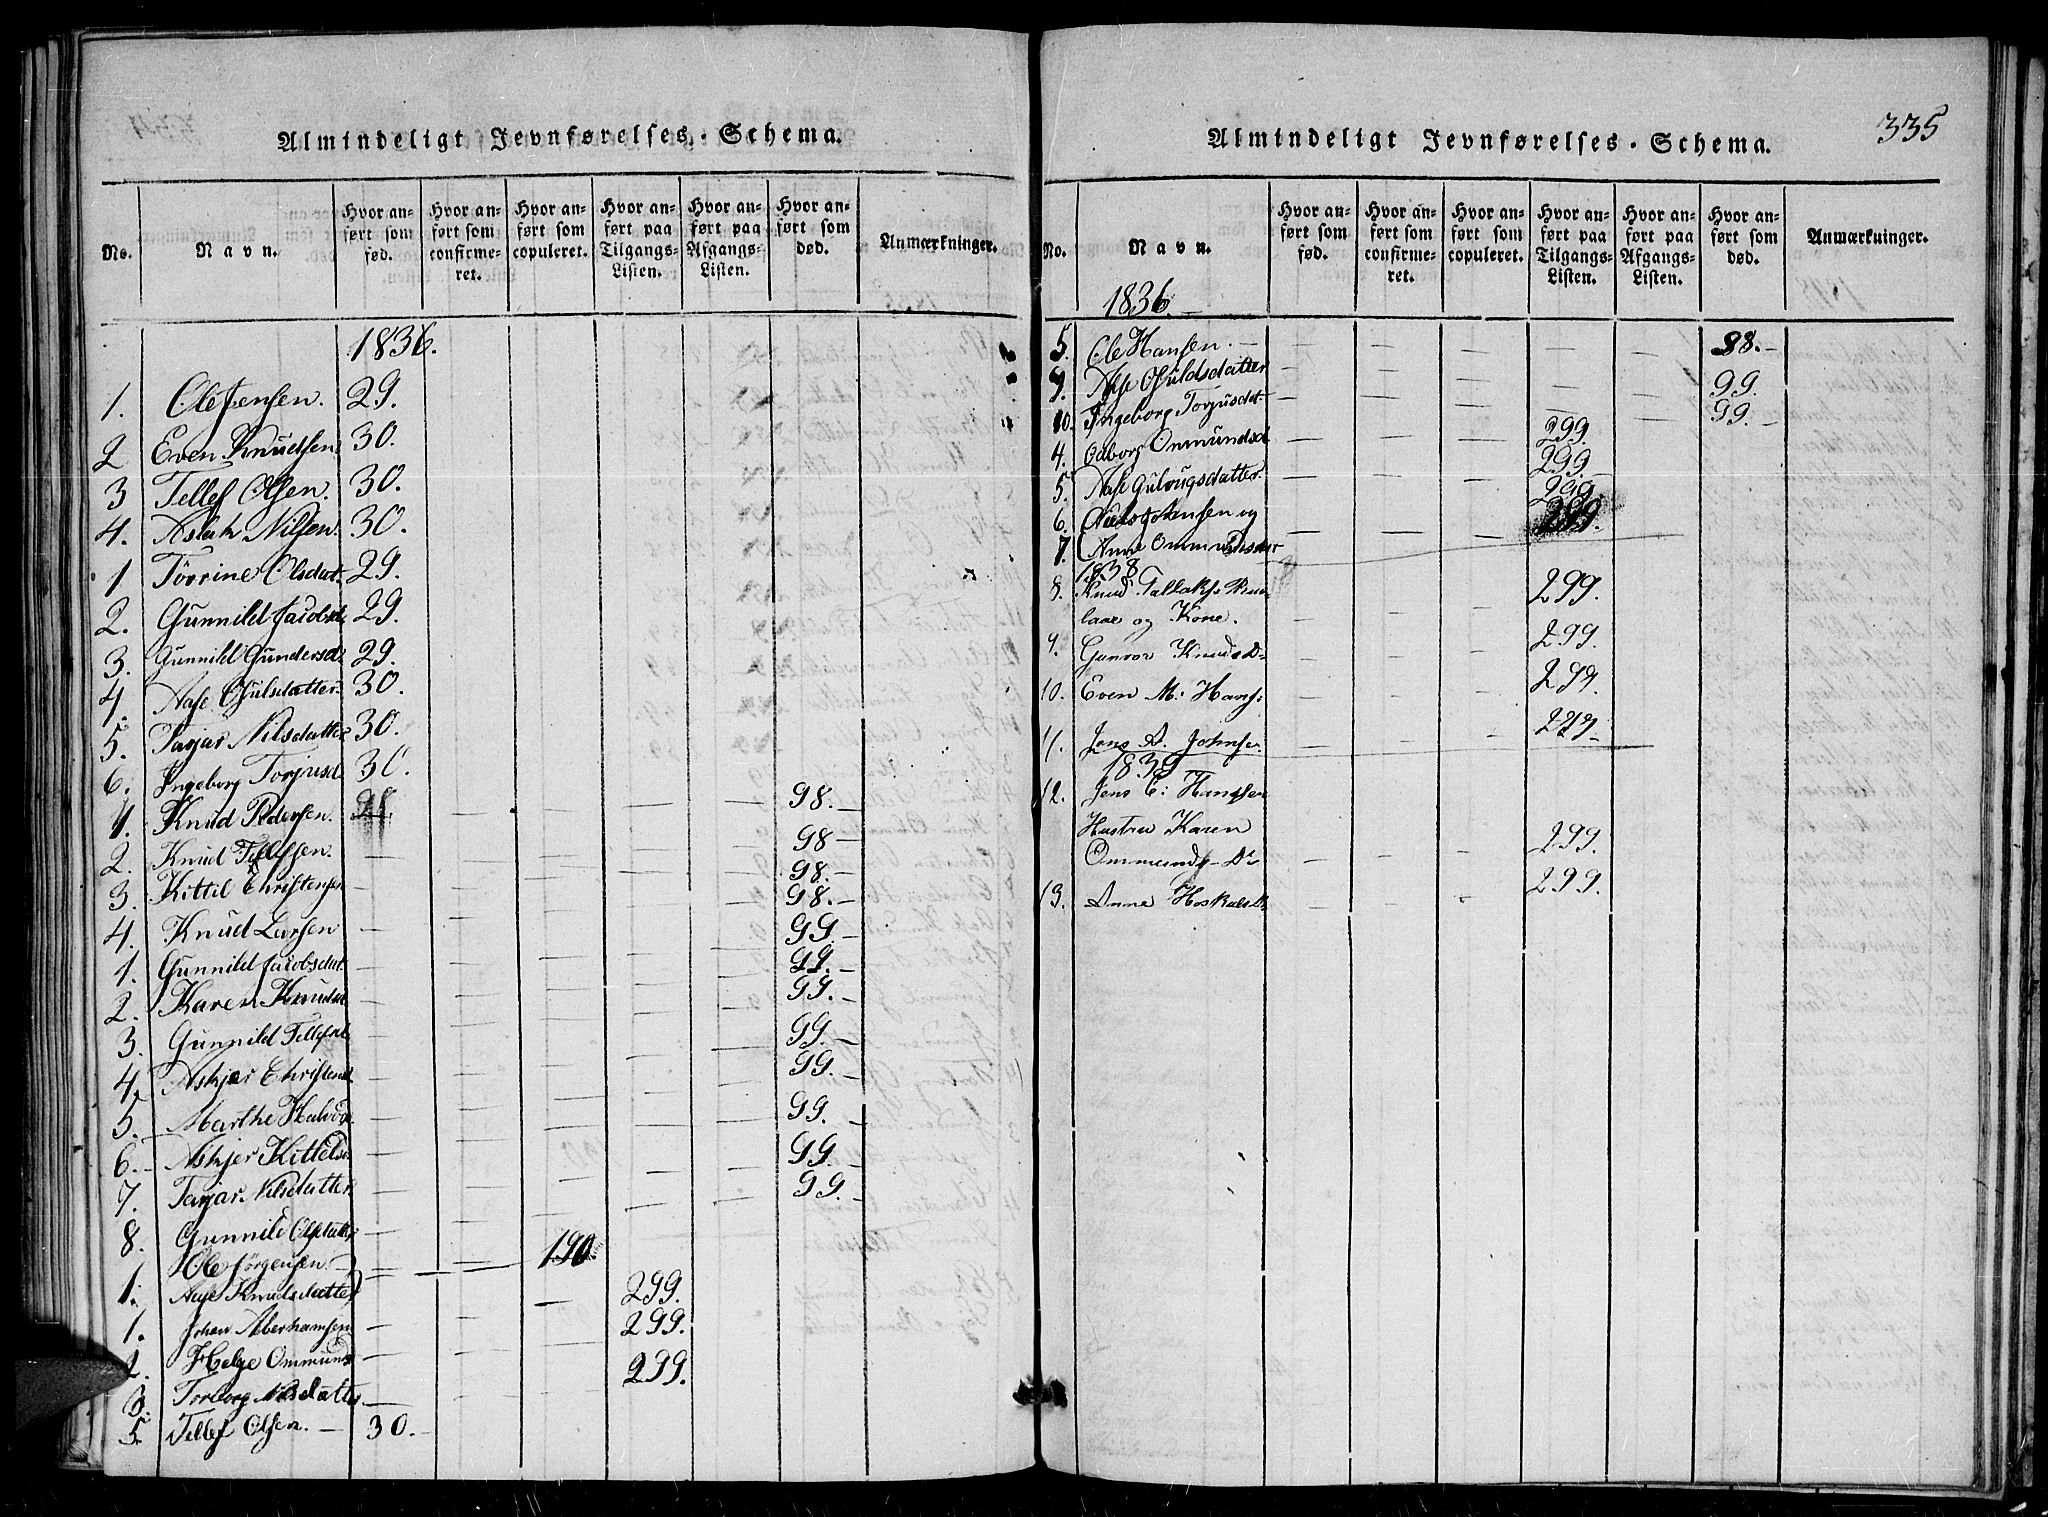 Almindeligt Jevnførelses-Schema.
No.
Navn.
Hvor anført som fød.
Hvor anført som confirmeret.
Hvor anført som copuleret.
Hvor anført paa Tilgangs-Listen.
Hvor anført paa Afgangs-Listen.
Hvor anført som død.
Anmærkninger.
1836.
1. Ole Jensen. 29.
2 Even Knudsen. 30.
3 Tellef Olsen. 30.
4. Aslak Nilsen. 30.
1 Törrine Olsdat. 29.
2. Gunnild Jacobsd. 29.
3. Gunnild Gundersd. 29.
4. Aase Ofulsdatter. 30.
5. Tarjar Nilsdatter 30.
6. Ingeborg Torjusd. 30.
1. Knud Pedersen. 98.
2. Knud Tellefsen. 98
3. Kittil Christensen 98.
4. Knud Larsen 98.
1. Gunnild Jacobsdat. 99
2. Karen Knudsd 99.
3. Gunnild Tellefsd. 99.
4. Askjer Christensd 99.
5. Marthe Halvo 99.
6. Askjer Kittelsd 99.
7. Tarjar Nilsdatter 99.
8. Gunnild Olsdatter 99.
Ole Jörgensen.
1. Aase Knudsdatter 190.
1. Johan Aberhamsen 299.
2. Helge Ommunds 299.
3. Torborg Nilsdatter 299.
5 Tellef Olsen. 30.
335
Almindeligt Jevnførelses-Schema.
No.
Navn.
Hvor anført som fød.
Hvor anført som confirmeret.
Hvor anført som copuleret.
Hvor anført paa Tilgangs-Listen.
Hvor anført paa Afgangs-Listen.
Hvor anført som død.
Anmærkninger.
1836.
5. Ole Hansen. 98.
9. Aase Ofuldsdatter 99.
10. Ingeborg Torjusdat. 99.
4. Ommunds 299.
5. Aase Gulougsdatter. 299.
6. og 299.
7. Anne Ommundsdatter 299.
1838
8. Knud Tallaks.
laae og Kone. 299.
9. Gunvor Knuds D 299.
10. Even M. Hans: 299.
11. Jens A. Johnsen 299
1839
12. Jens C: Hansen
Hustru Karen
Ommunds Dr 299.
13. Anne Hoskulsd 299.